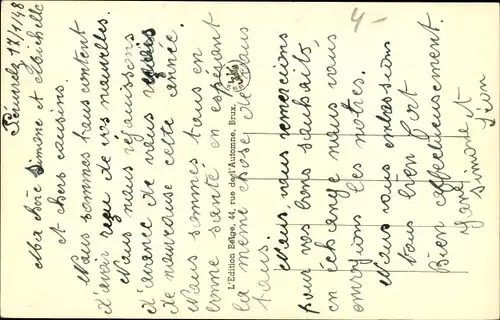 17/1/48
Ma chère Simone et Michelle
et chers cousins.
Nous sommes tous content
d'avoir reçu de vos nouvelles.
Nous nous réjouissons
d'avance de vous
de nouveau cette année.
Nous sommes tous en
bonne santé en espérant
la même chose de vous
tous.
Nous, vous remercions
pour vos bons souhaits,
en échange nous vous
envoyons les notres.
Nous vous embrassons
tous bien fort
Bien affectueusement.
Simone et
Léon
4-
L'Edition Belge, 44, rue de l'Automne, Brux.